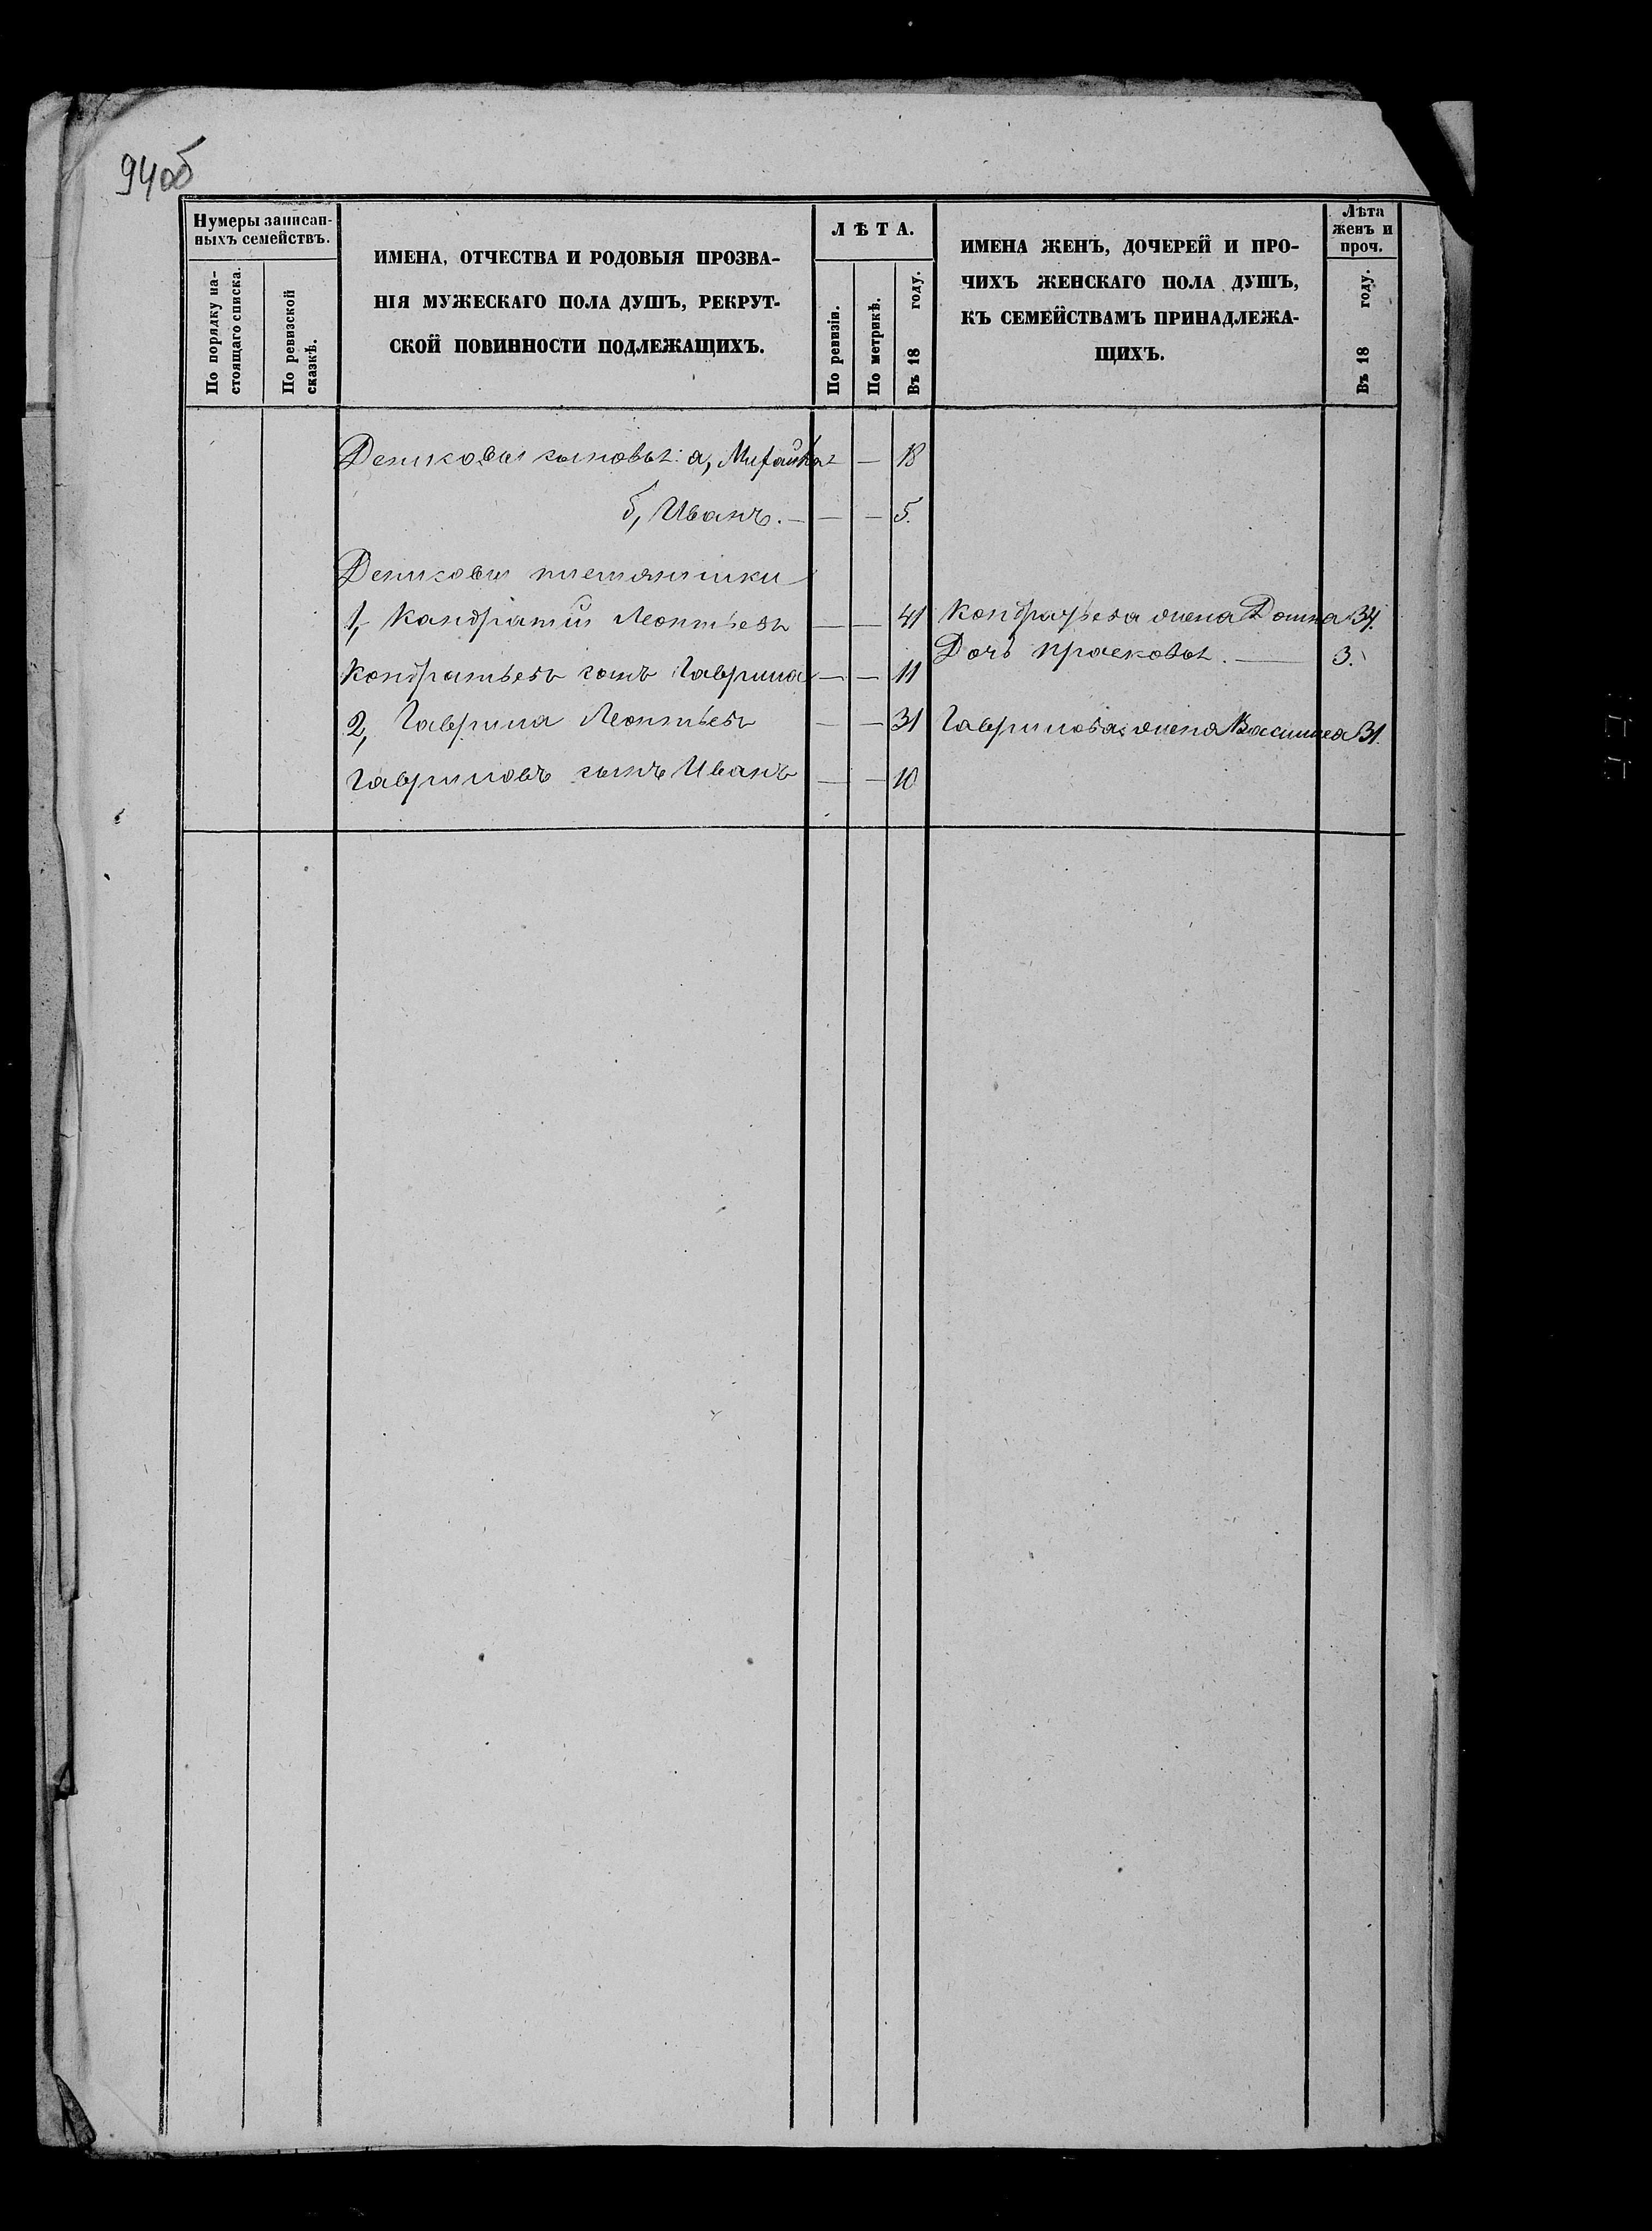 94об
Нумеры записан-
ныхъ семействъ.
По порядку на-
стоящаго списка.
По ревизской
сказкѣ.
ИМЕНА, ОТЧЕСТВА И РОДОВЫЯ ПРОЗВА-
НІЯ МУЖЕСКАГО ПОЛА ДУШЪ, РЕКРУТ-
СКОЙ ПОВИННОСТИ ПОДЛЕЖАЩИХЪ.
ЛѢТА.
По ревизіи.
По метрикѣ.
Въ 18 году.
ИМЕНА ЖЕНЪ, ДОЧЕРЕЙ И ПРО-
ЧИХЪ ЖЕНСКАГО ПОЛА ДУШЪ,
КЪ СЕМЕЙСТВАМЪ ПРИНАДЛЕЖА-
ЩИХЪ.
Лѣта
женъ и
проч.
Въ 18 году.
сыновья: а, — 18
б, Иванъ. — — — 5.
племянники
1, Кандратій Леонтьевъ — — 41 Кондратьева жена Домна 34.
Дочь Просковья. — 3.
Кондратьевъ сынъ Гаврила — — 11
2, Гаврила Леонтьевъ — — 31 Гаврилова жена Василиса 31.
Гавриловъ сынъ Иванъ — — 10